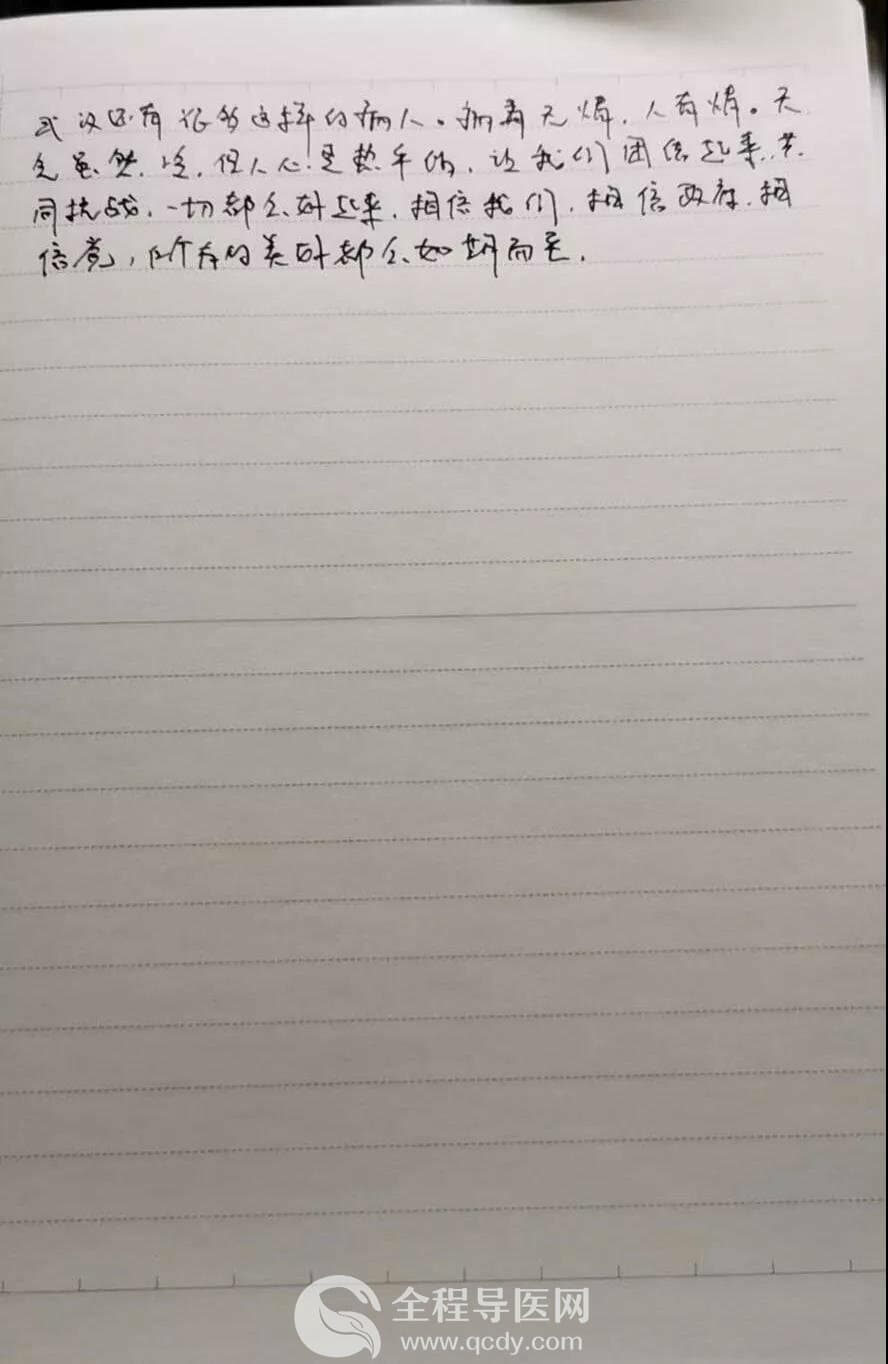 武汉还有很多这样的病人。病毒无情，人有情。天
气虽然冷，但人心是热乎的，让我们团结起来，共
同抗战，一切都会好起来，相信我们，相信政府，相
信党，所有的美好都会如期而至。
全程导医网
www.qcdy.com